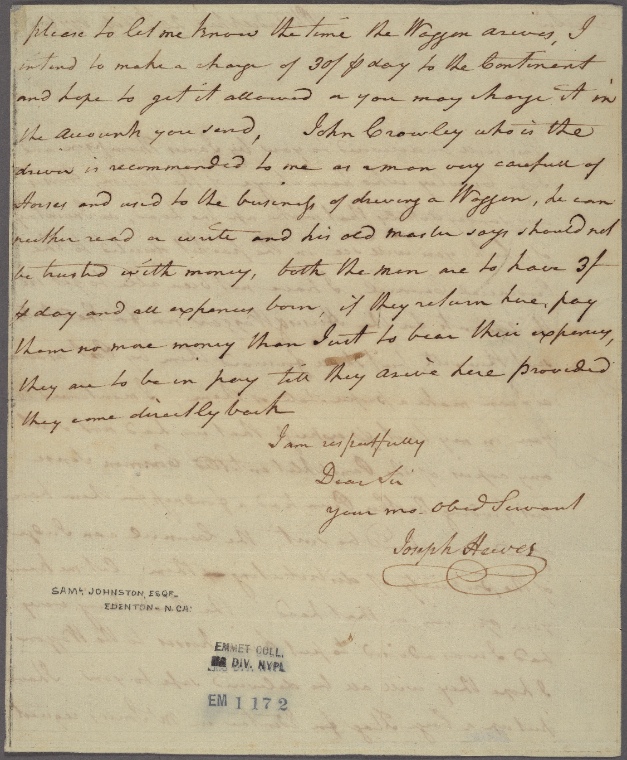 please to let me know the time the Waggon arives, I
intend to make a charge of 30/ ⅌ day to the Continent
and hope to get it allowed or you may charge it in
the Accounts you send, John Crowley who is the
driver is recommended to me as a man very carefull of
Horses and used to the business of driving a Waggon, he can
neither read or write and his old master says should not
be trusted with money, both the men are to have 3/
⅌ day and all expences born, if they return here, pay
them no more money than Just to bear their expences,
they are to be in pay till they arive here provided
they come directly back
I am respectfully
Dear Sir
your mo. Obed Servant
Joseph Hewes
SAML JOHNSTON, ESQR.
EDENTON - N. CA:
EMMET COLL.
DIV. NYPL
EM 1172